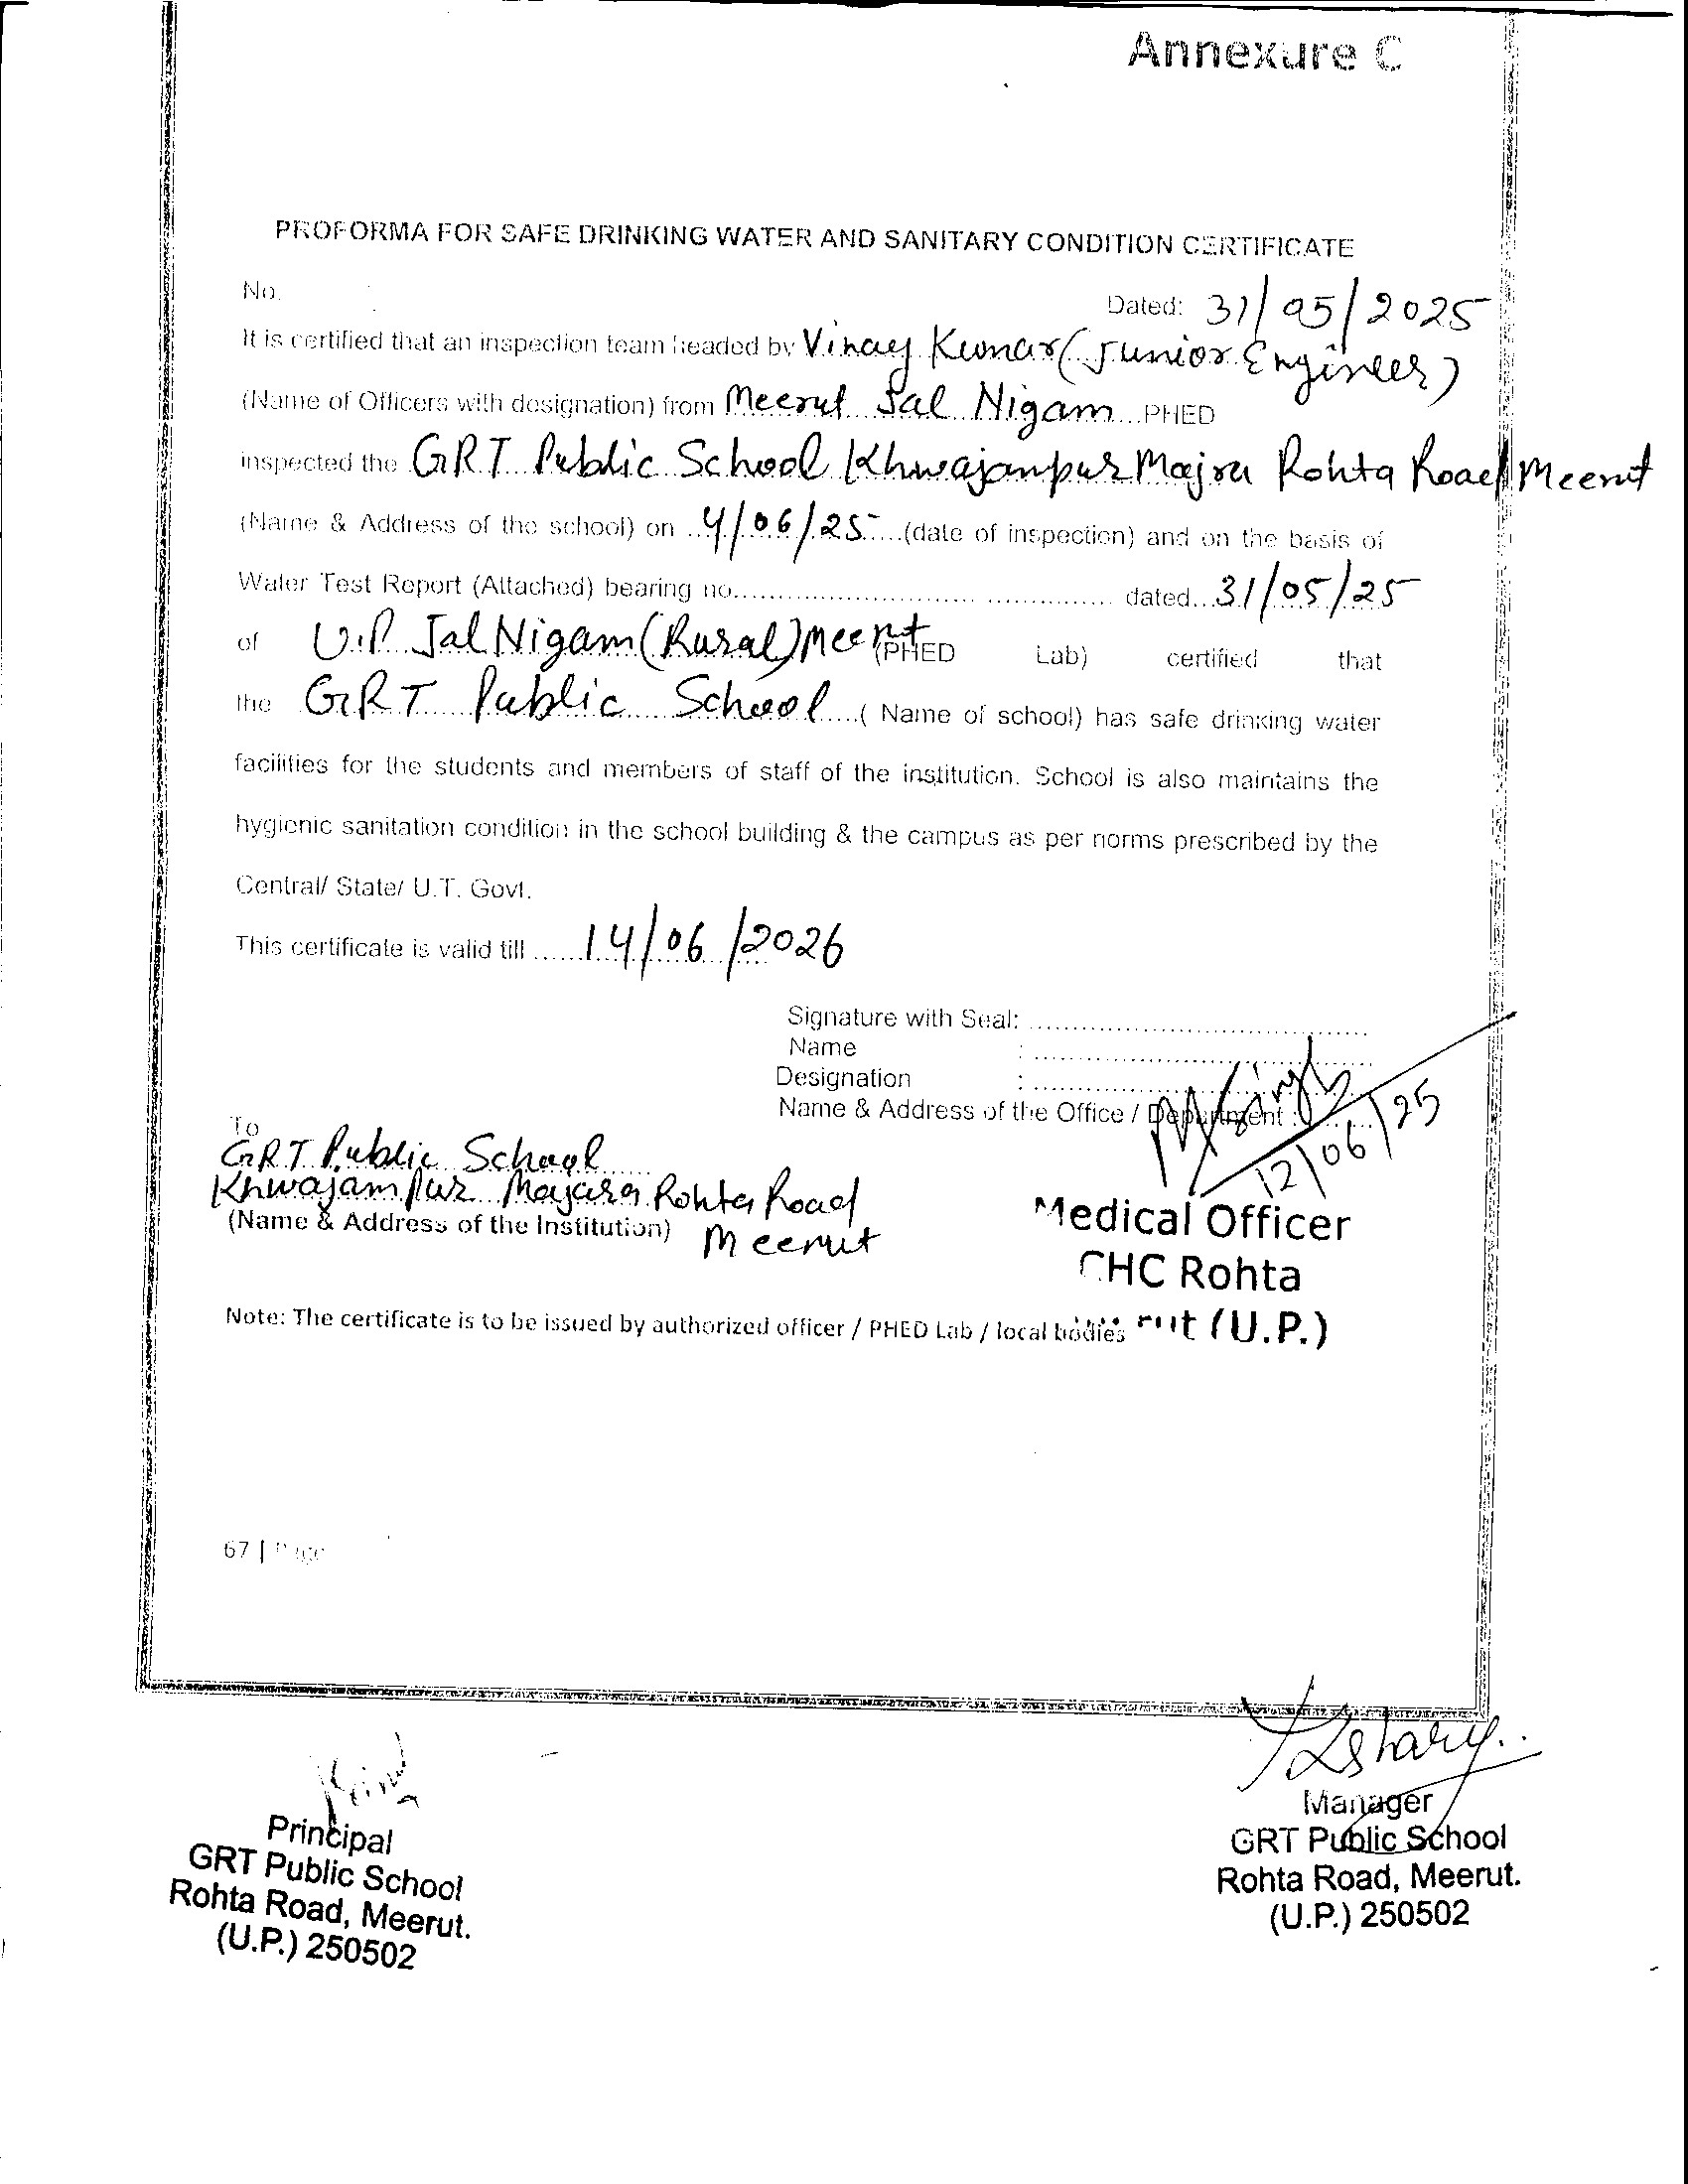 Annexure C
PROFORMA FOR SAFE DRINKING WATER AND SANITARY CONDITION CERTIFICATE
No.
Dated: 31/05/2025
It is certified that an inspection team headed by Vinay Kumar (Junior Engineer)
(Name of Officers with designation) from Meerut Jal Nigam PHED
inspected the GRT Public School Khwajampur Majra Rohta Road Meerut
(Name & Address of the school) on 4/06/25 (date of inspection) and on the basis of
Water Test Report (Attached) bearing no. dated 31/05/25
of U.P. Jal Nigam (Rural) Meerut (PHED Lab) certified that
the GRT Public School ( Name of school) has safe drinking water
facilities for the students and members of staff of the institution. School is also maintains the
hygienic sanitation condition in the school building & the campus as per norms prescribed by the
Central/ State/ U.T. Govt.
This certificate is valid till 14/06/2026
Signature with Seal:
Name :
Designation :
Name & Address of the Office / Department :
12/06/25
To
GRT Public School
Khwajampur Majara Rohta Road
(Name & Address of the Institution) Meerut
Medical Officer
CHC Rohta
(U.P.)
Note: The certificate is to be issued by authorized officer / PHED Lab / local bodies
67 | Page
Principal
GRT Public School
Rohta Road, Meerut.
(U.P.) 250502
Manager
GRT Public School
Rohta Road, Meerut.
(U.P.) 250502